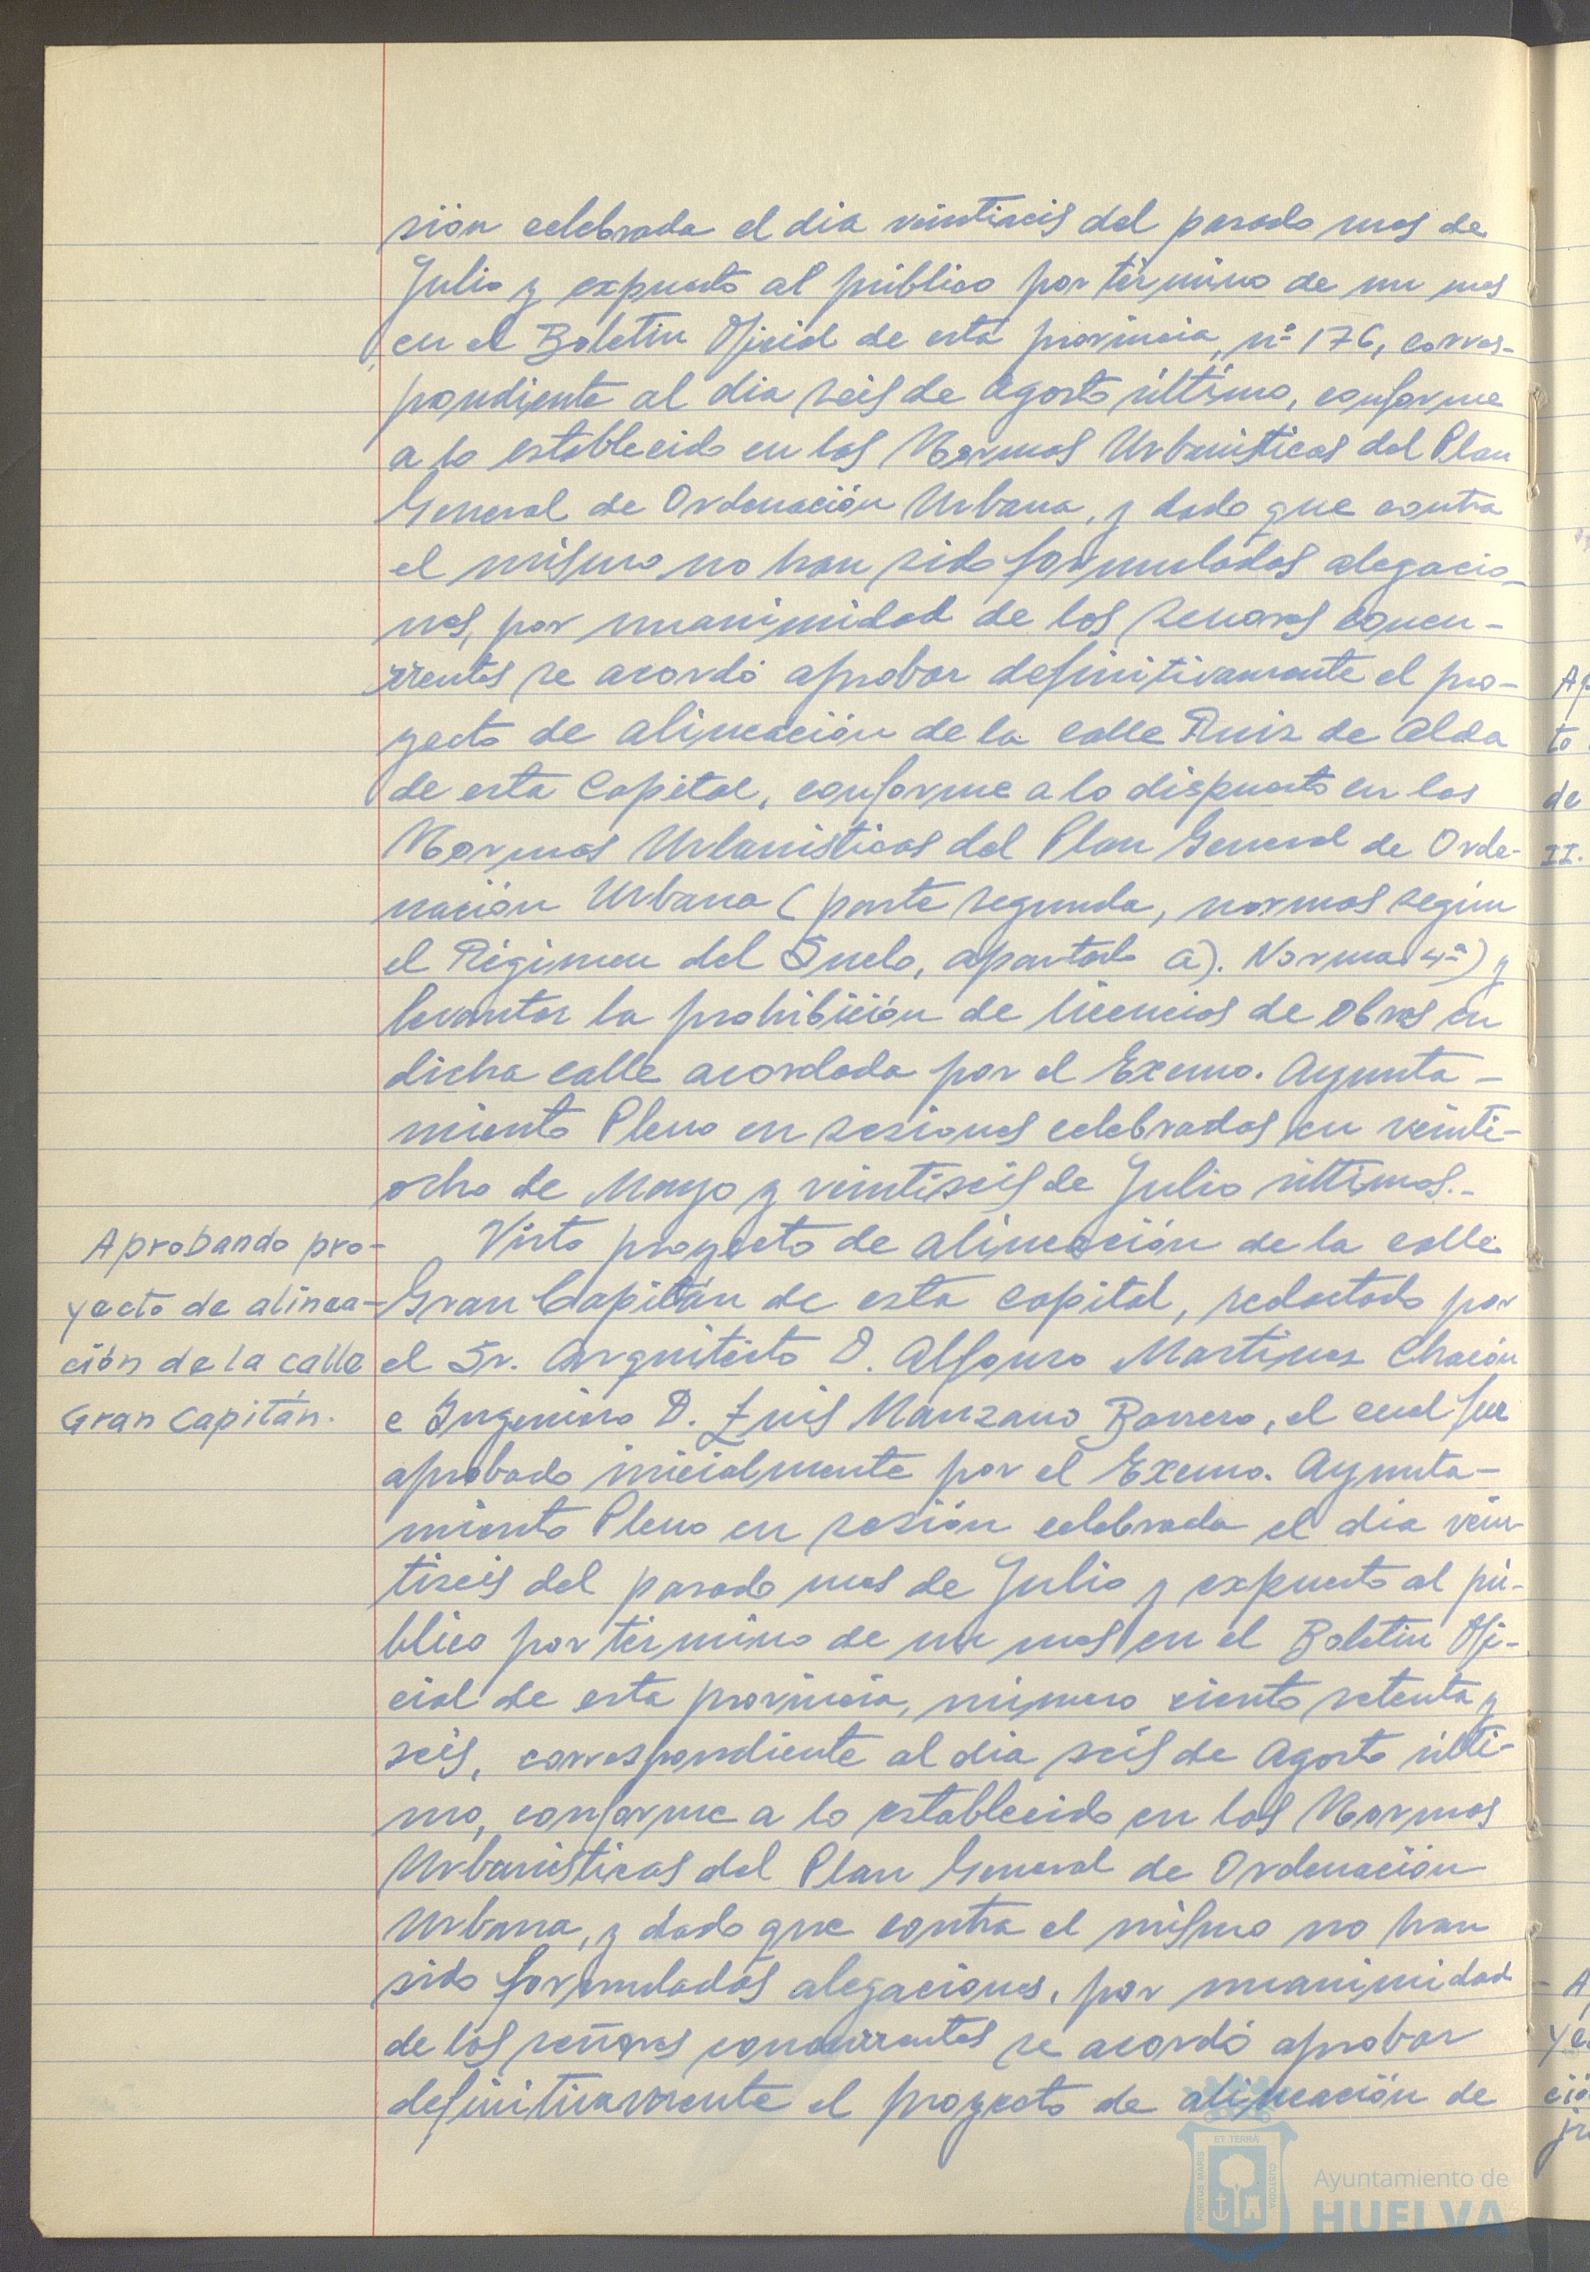 sión celebrada el dia veintiseis del pasado mes de
Julio y expuesto al público por término de un mes
en el Boletin Oficial de esta provincia, nº 176, corres-
pondiente al dia seis de Agosto último, conforme
a lo establecido en las Normas Urbanisticas del Plan
General de Ordenación Urbana, y dado que contra
el mismo no han sido formuladas alegacio-
nes, por unanimidad de los señores concu-
rrentes se acordó aprobar definitivamente el pro-
yecto de alineación de la calle Ruiz de Alda
de esta Capital, conforme a lo dispuesto en las
Normas Urbanisticas del Plan General de Orde-
nación Urbana (parte segunda, normas según
el Régimen del Suelo, apartado a). Norma 4ª) y
levantar la prohibición de licencias de obras en
dicha calle acordada por el Excmo. Ayunta-
miento Pleno en sesiones celebradas en veinti-
ocho de Mayo y veintiseis de Julio últimos.-
Aprobando pro-
yecto de alinea-
ción de la calle
Gran Capitán.
Visto proyecto de alineación de la calle
Gran Capitán de esta capital, redactado por
el Sr. Arquitecto D. Alfonso Martinez Chacón
e Ingeniero D. Luis Manzano Borrero, el cual fue
aprobado inicialmente por el Excmo. Ayunta-
miento Pleno en sesión celebrada el dia vein-
tiseis del pasado mes de Julio y expuesto al pú-
blico por término de un mes en el Boletin Ofi-
cial de esta provincia, número ciento setenta y
seis, correspondiente al dia seis de Agosto últi-
mo, conforme a lo establecido en las Normas
Urbanisticas del Plan General de Ordenación
Urbana, y dado que contra el mismo no han
sido formuladas alegaciones, por unanimidad
de los señores concurrentes se acordó aprobar
definitivamente el proyecto de alineación de
to
de
II.
PORTUS MARIS
ET TERRÆ
CUSTODIA
Ayuntamiento de
HUELVA